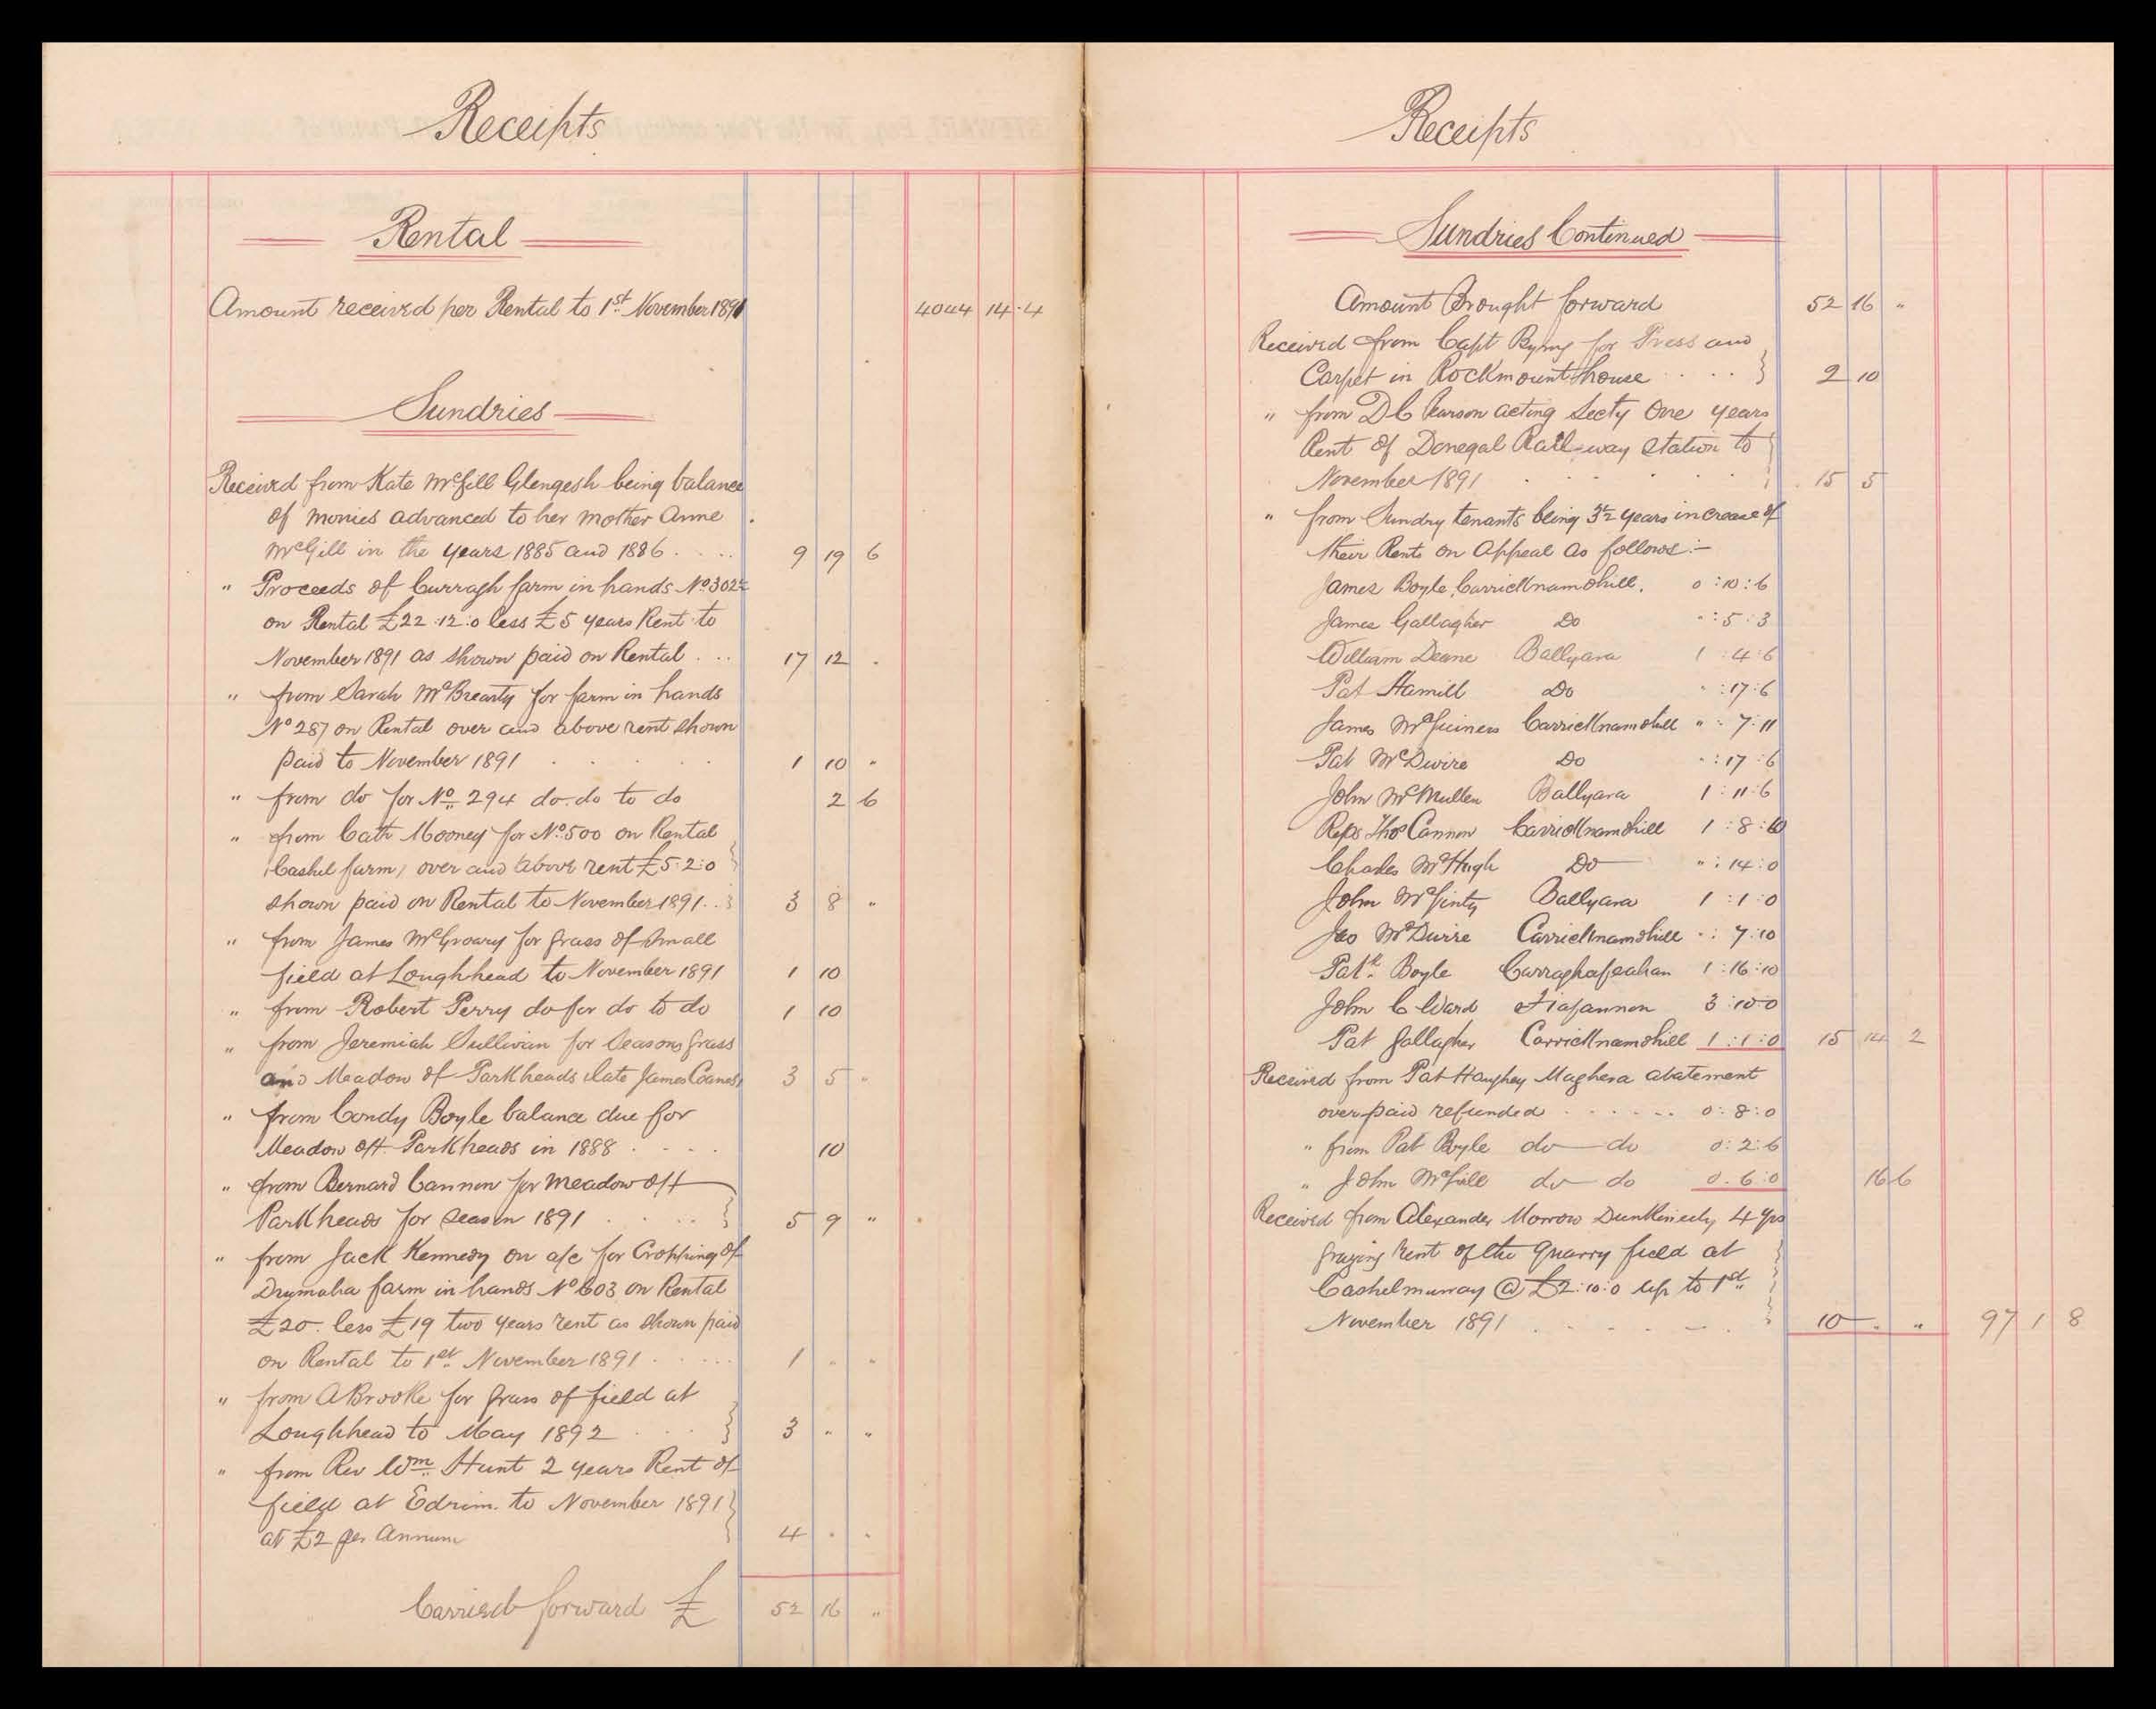 Receipts
Rental
Amount received per Rental to 1st November 1891 4044 14 4
Sundries
Received from Kate McGill Glengesh being balance
of monies advanced to her mother Anne
McGill in the years 1885 and 1886 9 19 6
" Proceeds of Curragh farm in hands No 302½
on Rental £22:12:0 less £5 years Rent to
November 1891 as shown paid on Rental 17 12 "
" from Sarah McBrearty for farm in hands
No 287 on Rental over and above rent shown
paid to November 1891 1 10 "
" from do for No 294 do. do to do 2 6
" from Cath Mooney for No 500 on Rental
(Cashel farm) over and above rent £5:2:0
shown paid on Rental to November 1891 3 8 "
" from James McGroary for grass of small
field at Loughhead to November 1891 1 10
" from Robert Perry do for do to do 1 10
" from Jeremiah Sullivan for Seasons grass
and Meadow of Parkheads (late James Coanes) 3 5 "
" from Condy Boyle balance due for
Meadow off Parkheads in 1888 10
" from Bernard Cannon for Meadow off
Parkheads for season 1891 5 9 "
" from Jack Kennedy on a/c for Cropping of
Drumaha farm in hands No 603 on Rental
£20. less £19 two years rent as shown paid
on Rental to 1st November 1891 1 " "
" from A Brooke for grass of field at
Loughhead to May 1892 3 " "
" from Rev Wm Hunt 2 years Rent of
field at Edrim. to November 1891
at £2 per Annum 4 " "
Carried forward £ 52 16 "
Receipts
Sundries Continued
Amount Brought forward 52 16 "
Received from Capt Byng for Press and
Carpet in Rockmount house 2 10
" from D C Pearson acting Secty One years
Rent of Donegal Rail-way Station to
November 1891 15 5
" from Sundry tenants being 3½ years increase of
their Rents on Appeal as follows:-
James Boyle, Carricknamohill. 0:10:6
James Gallagher Do ":5:3
William Deane Ballyara 1:4:6
Pat Hamill Do ":17:6
James McGuiness Carricknamohill ":7:11
Pat McDwire Do ":17:6
John McMullen Ballyara 1:11:6
Reps Thos Cannon Carricknamohill 1:8:10
Charles McHugh Do ":14:0
John McGinty Ballyara 1:1:0
Jas McDwire Carricknamohill ":7:10
Patk Boyle Curraghafeahan 1:16:10
John C Ward 3:10:0
Pat Gallagher Carricknamohill 1:1:0 15 14 2
Received from Pat Haughey Maghera abatement
overpaid refunded 0:8:0
" from Pat Boyle do do 0:2:6
" John McGill do do 0.6:0 16 6
Received from Alexander Morrow Dunkineely 4 yrs
grazing rent of the Quarry field at
Cashelmurray @ £2:10:0 up to 1st
November 1891 10 " " 97 1 8